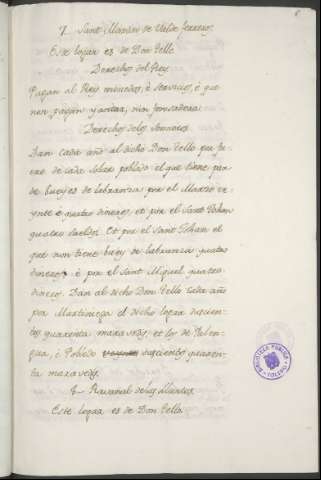 6
7 Sant Martin de Valde ferreros.
Este logar es de Don Tello.
Derechos del Rey
Pagan al Rey monedas, è servicios, è que
non pagan yantar, nin fonsadera.
Derechos delos Sennores
Dan cada año al dicho Don Tello por fu-
ero de cada solar poblado el que tiene par
de bueyes de labranza por el Marzo ve-
ynte è quatro dineros, et por el Sant Johan
quatro sueldos. Et por el Sant Johan el
que non tiene buey de labranza quatro
dineros, è por el Sant Miguel quatro
dineros. Dan al dicho Don Tello cada año
por Martiniega el dicho logar docien-
tos quarenta maravedis, et los de Palen-
zuela, è Poblado docientos quaren-
ta maravedis.
8 Ravanal delos Llantos.
Este logar es de Don Tello
BIBLIOTECA PUBLICA
TOLEDO